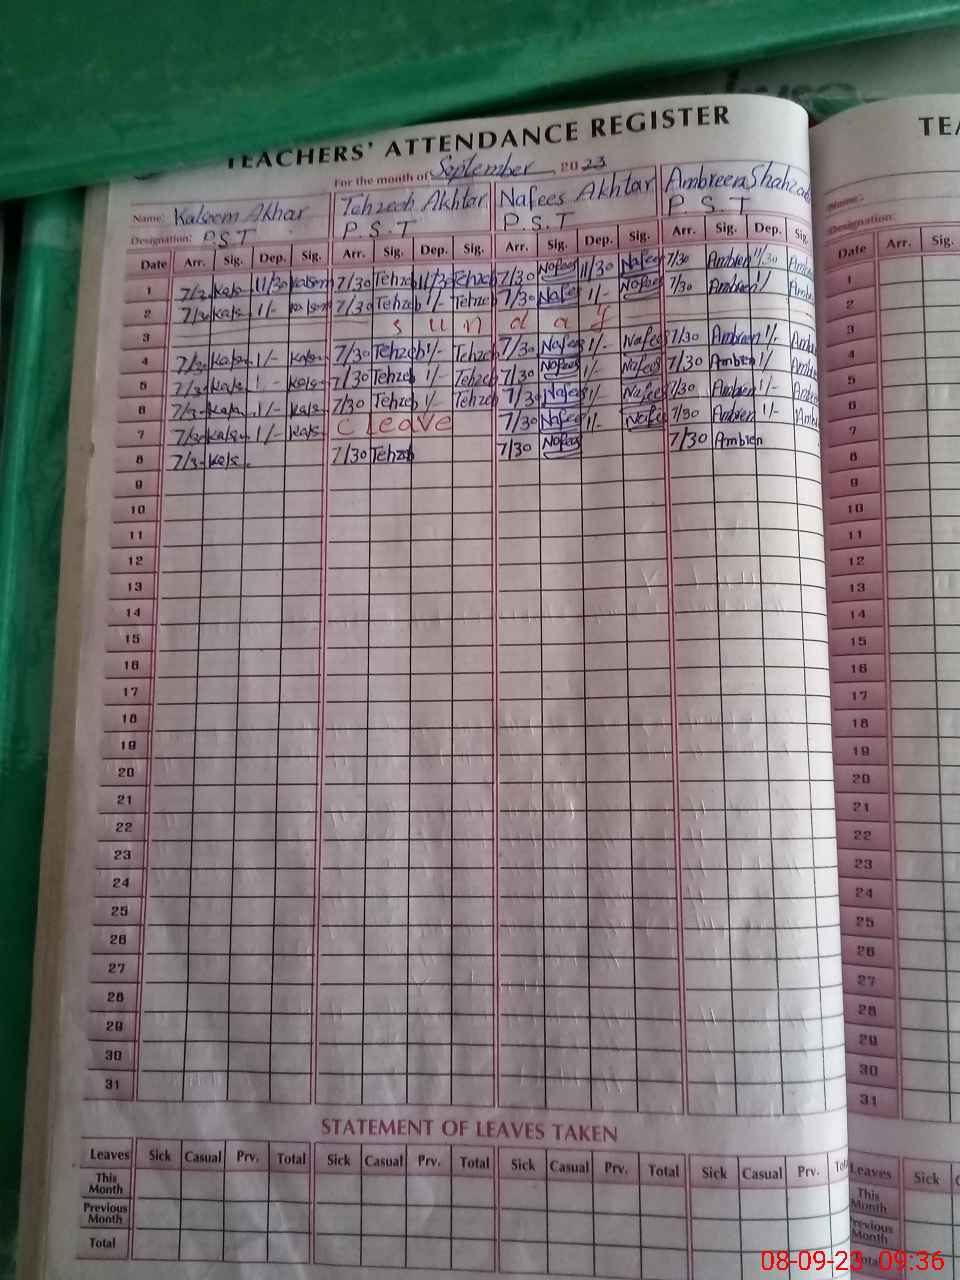 TEACHERS' ATTENDANCE REGISTER
For the month of September 2023
Name: Kalseem Akhar Tehzeeb Akhtar Nafees Akhtar Ambreen Shahzadi
Designation: P.S.T P.S.T P.S.T P.S.T
Date Arr. Sig. Dep. Sig. Arr. Sig. Dep. Sig. Arr. Sig. Dep. Sig. Arr. Sig. Dep. Sig.
1 7/30 11/30 Kalsom 7/30 Tehzeb 11/30 Tehzeb 7/30 Nafees 11/30 Nafees 7/30 Ambren 11/30
2 7/30 1/- 7/30 Tehzeb 1/- Tehzeb 7/30 Nafees 1/- Nafees 7/30 Ambren
3 Sunday
4 7/30 1/- 7/30 Tehzeb 1/- Tehzeb 7/30 Nafees 1/- Nafees 7/30 Ambreen 1/-
5 7/30 7/30 Tehzeb 1/- Tehzeb 7/30 Nafees 1/- Nafees 7/30 Ambren 1/
6 7/30 1/- 7/30 Tehzeb 1/- Tehzeb 7/30 Nafees 1/- Nafees 7/30 Ambren 1/-
7 7/30 1/- C leave 7/30 Nafees 1/- Nafees 7/30 Ambren 1/-
8 7/30 7/30 Tehzeb 7/30 Nafees 7/30 Ambren
9
10
11
12
13
14
15
16
17
18
19
20
21
22
23
24
25
26
27
28
29
30
31
STATEMENT OF LEAVES TAKEN
Leaves Sick Casual Prv. Total Sick Casual Prv. Total Sick Casual Prv. Total Sick Casual Prv.
This Month
Previous Month
Total
TEA
Name:
Designation:
Date Arr. Sig.
1
2
3
4
5
6
7
8
9
10
11
12
13
14
15
16
17
18
19
20
21
22
23
24
25
26
27
28
29
30
31
Leaves Sick
This Month
Previous Month
Total
08-09-23 09:36